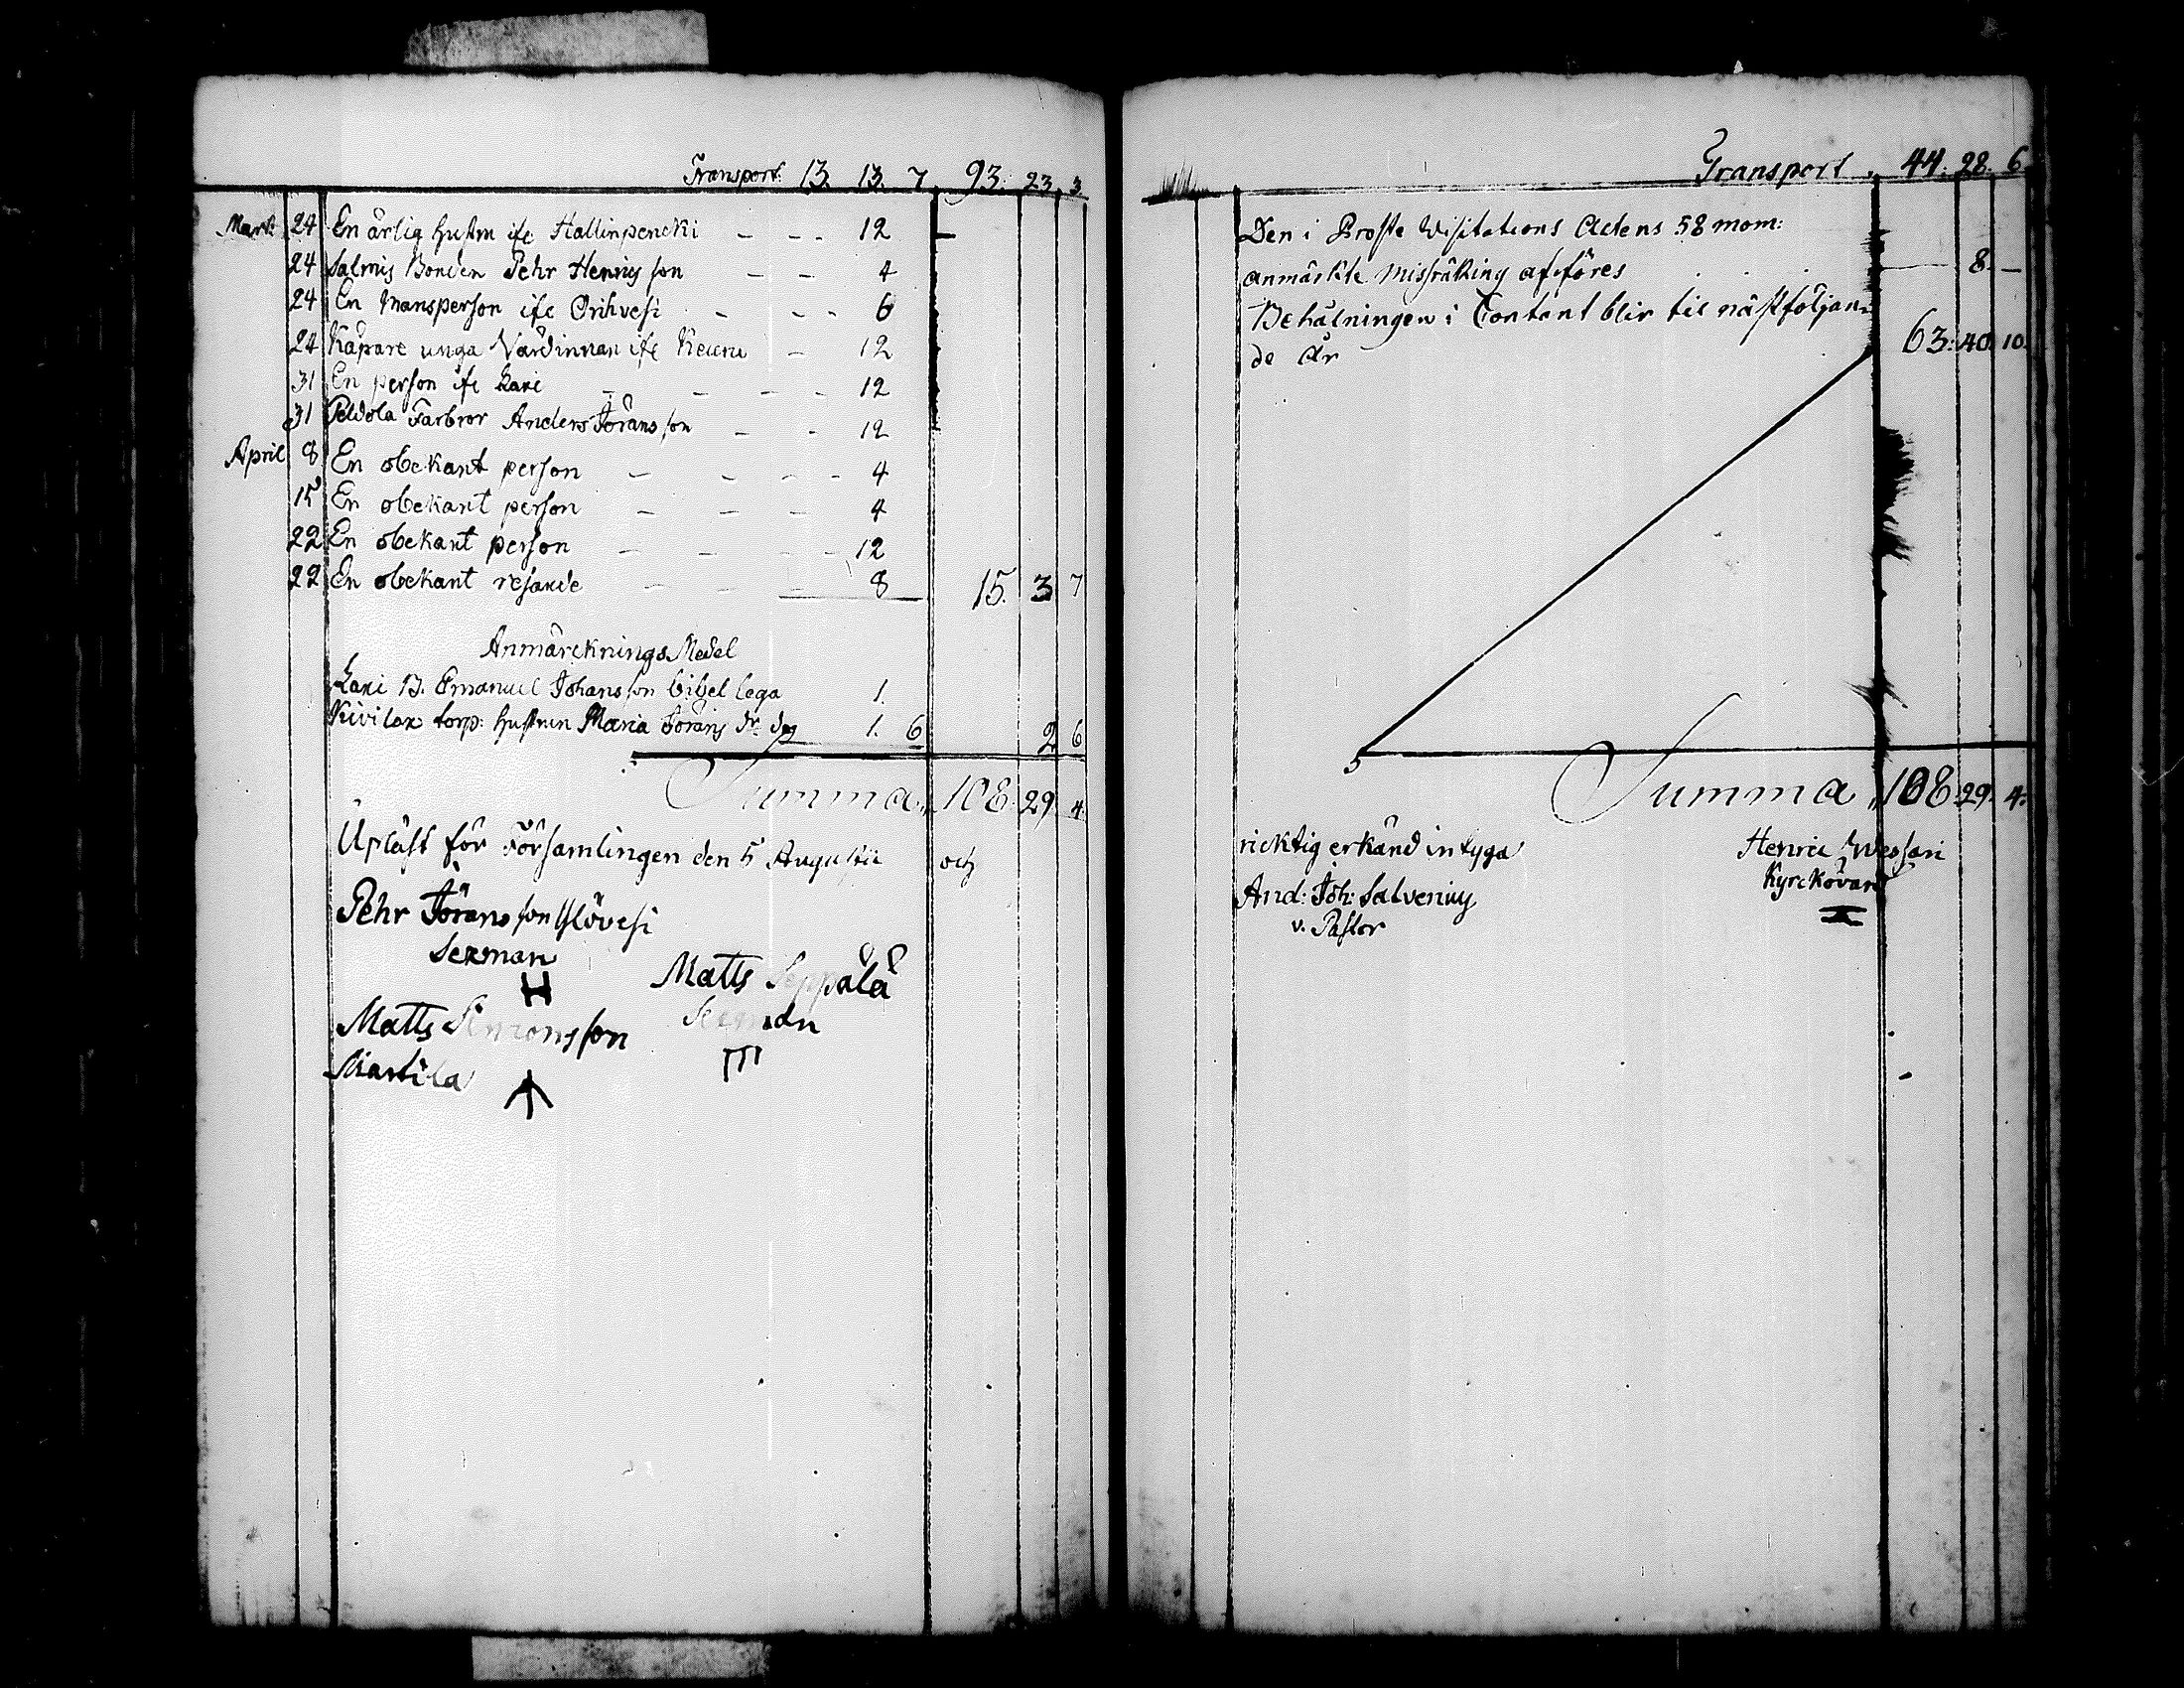 Transport. 13. 13. 7 93. 23. 3.
Mart: 24 En ärlig hustru ifr Hallinpencki - - - 12
24 Salmis Bonden Pehr Henrigson - - 4
24 En Mansperson ifr Orihvesi - - - 6
24 Käpare unga Värdinnan ifr Keuru - 12
31 En person ifr Laxi - - - - 12
31 Peldola Farbror Anders Jöransson - - 12
April 8 En obekant person - - - - 4
15 En obekant person - - - 4
22 En obekant person - - - - 12
22 En obekant resande - - - 8 15. 3 7
Anmärcknings Medel
Laxi B. Emanuel Johansson bibel lega 1.
Kivilax torp: hustrun Maria Jörans dr do 1. 6 2 6
Summa 108. 29. 4.
Upläst för Församlingen den 5 Augustii och
Pehr Jöransson Lövesi
Sexman
H
Matts Seppälä
Sexman
Matts Simonsson
Martila
Transport. 44. 28. 6.
Den i Proste Visitations Actens 58 mom:
anmärkte missräkning afföres . . . 8. -
Behålningen i Contant blir til nästföljan-
de år 63. 40. 10.
Summa 108. 29. 4.
ricktig erkänd intyga
And: Joh: Salvenius
v. Pastor
Henric Wessari
Kyrckovärd